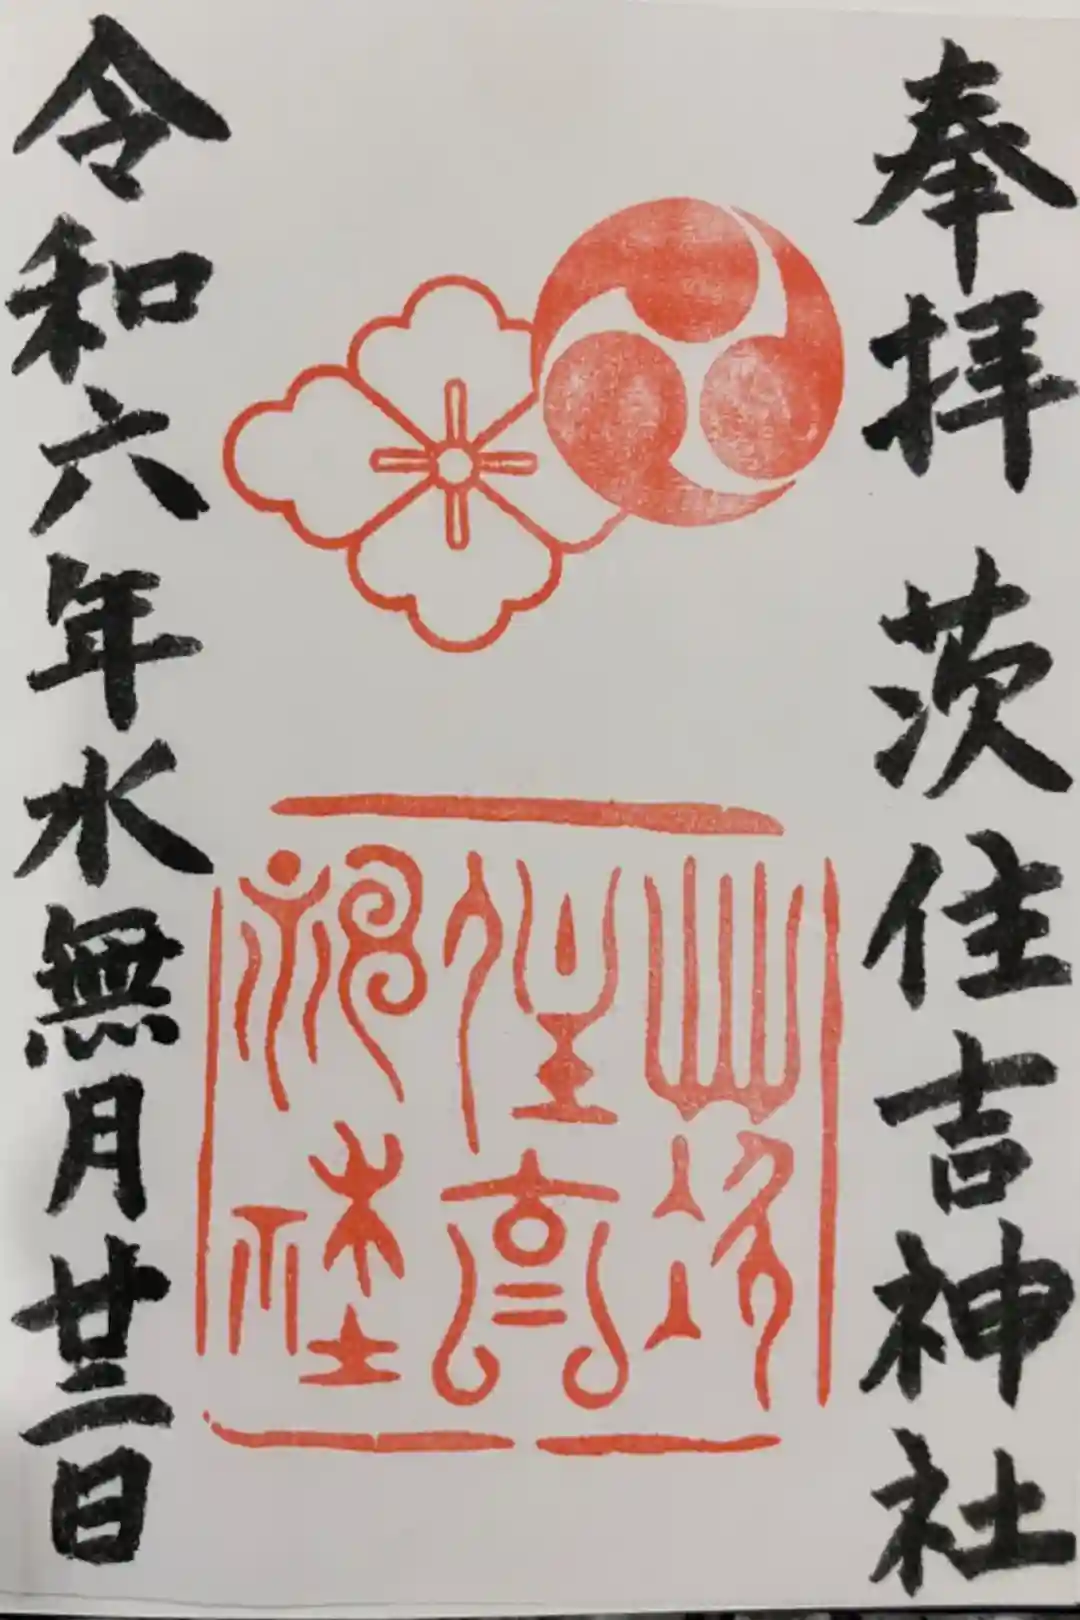 奉拝 茨住吉神社
茨
住吉
神社
令和六年水無月廿三日